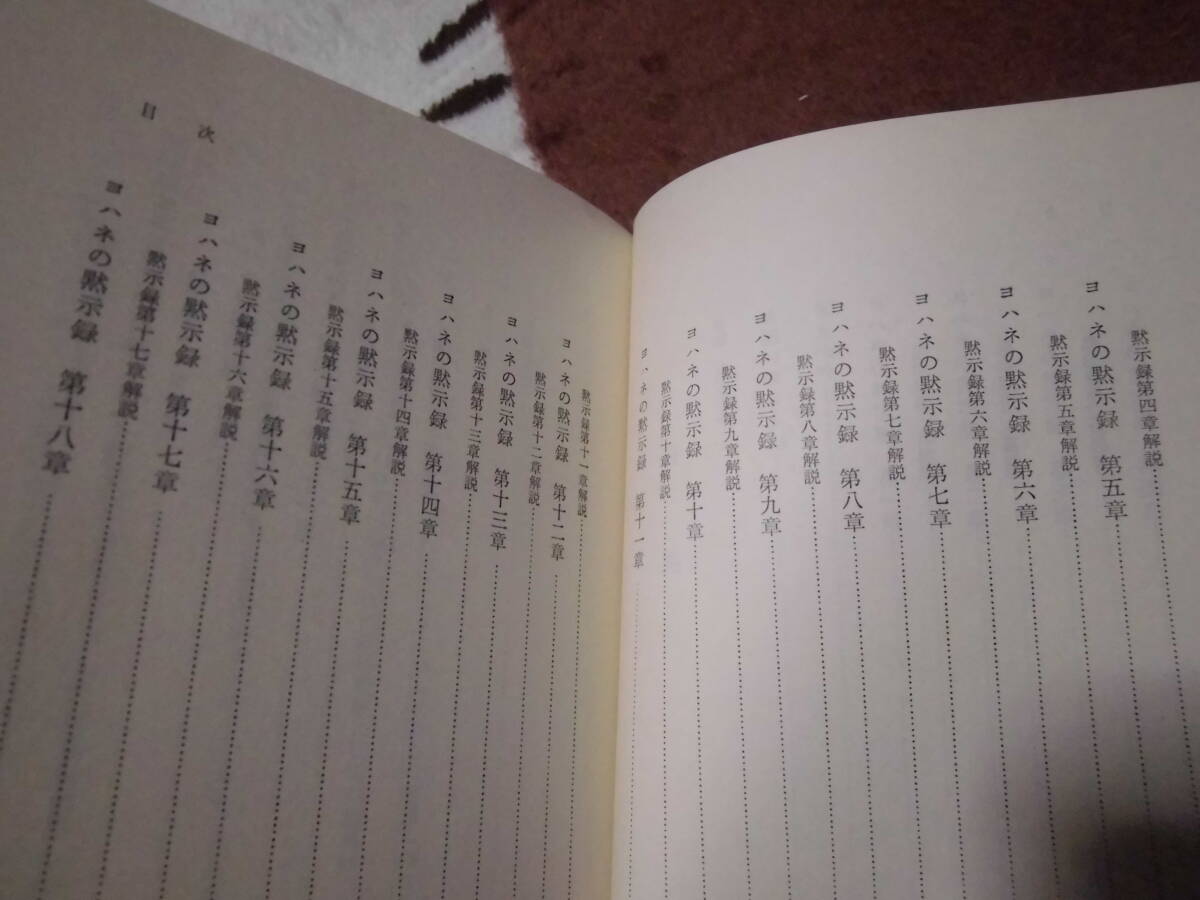 黙示録第四章解説
ヨハネの黙示録 第五章
黙示録第五章解説
ヨハネの黙示録 第六章
黙示録第六章解説
ヨハネの黙示録 第七章
黙示録第七章解説
ヨハネの黙示録 第八章
黙示録第八章解説
ヨハネの黙示録 第九章
黙示録第九章解説
ヨハネの黙示録 第十章
黙示録第十章解説
ヨハネの黙示録 第十一章
黙示録第十一章解説
ヨハネの黙示録 第十二章
黙示録第十二章解説
ヨハネの黙示録 第十三章
黙示録第十三章解説
ヨハネの黙示録 第十四章
黙示録第十四章解説
ヨハネの黙示録 第十五章
黙示録第十五章解説
ヨハネの黙示録 第十六章
黙示録第十六章解説
ヨハネの黙示録 第十七章
黙示録第十七章解説
ヨハネの黙示録 第十八章
目次